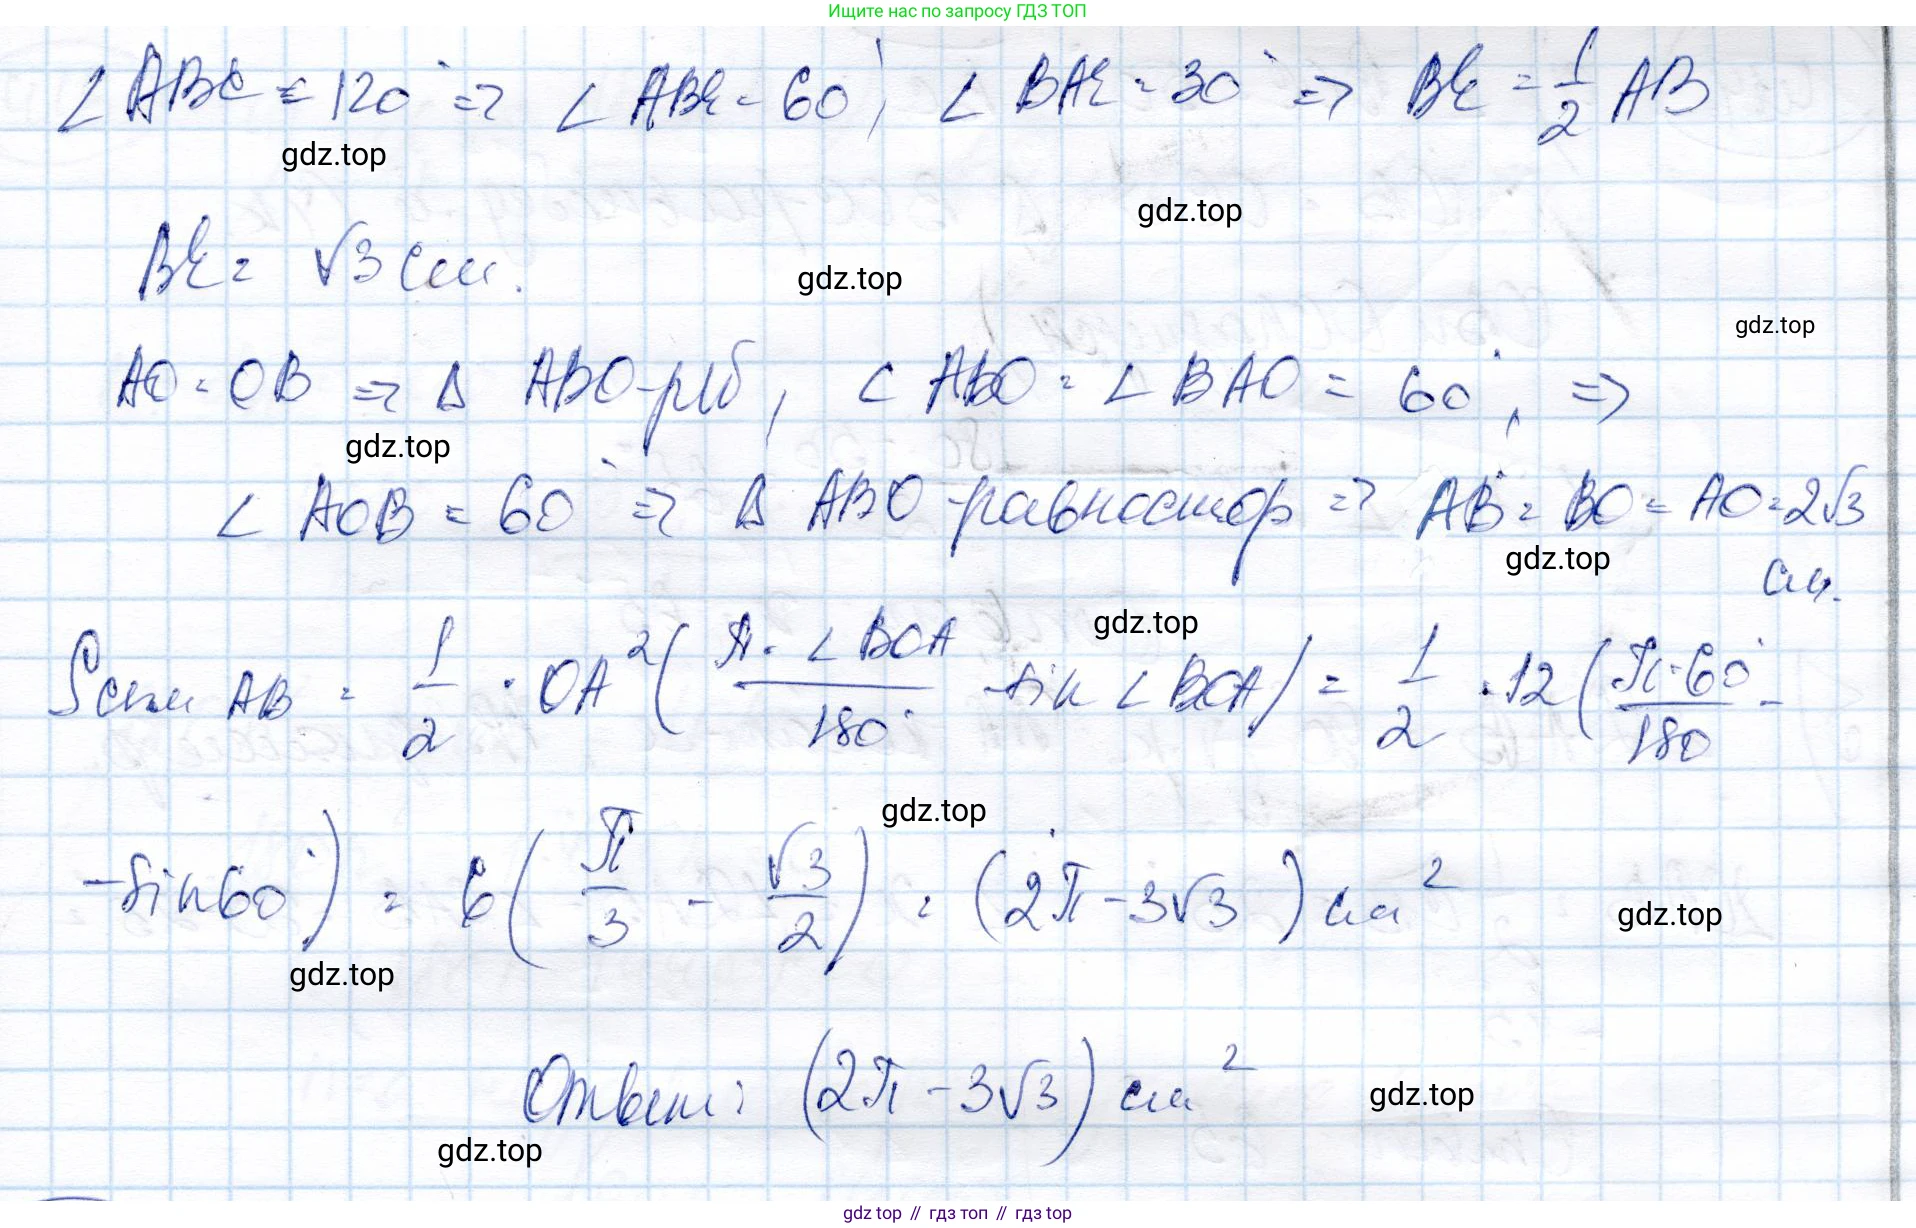 Ищите нас по запросу ГДЗ ТОП
∠ ABC = 120° => ∠ ABE = 60°, ∠ BAE = 30° => BE = 1/2 AB
gdz.top
gdz.top
BE = √3 см.
gdz.top
gdz.top
AO = OB => Δ ABO - р/б, ∠ ABO = ∠ BAO = 60°, =>
gdz.top
∠ AOB = 60° => Δ ABO - равностор => AB = BO = AO = 2√3 см.
gdz.top
gdz.top
Sсегм AB = 1/2 · OA² (π · ∠ BOA / 180° - sin ∠ BOA) = 1/2 · 12 (π · 60° / 180 -
gdz.top
- sin 60°) = 6 (π/3 - √3/2) = (2π - 3√3) см²
gdz.top
gdz.top
Ответ: (2π - 3√3) см²
gdz.top
gdz.top
gdz top // гдз топ // гдз top